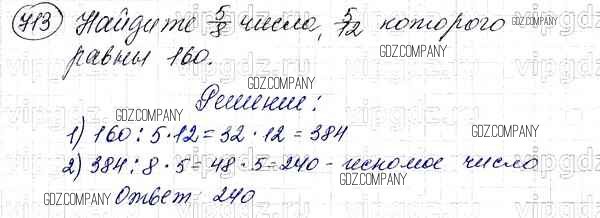 713 Найдите 5/8 числа, 5/12 которого
равны 160.
Решение:
1) 160 : 5 · 12 = 32 · 12 = 384
2) 384 : 8 · 5 = 48 · 5 = 240 - искомое число
Ответ 240
GDZ.COMPANY
GDZ.COMPANY
GDZ.COMPANY
GDZ.COMPANY
GDZ.COMPANY
GDZ.COMPANY
GDZ.COMPANY
GDZ.COMPANY
GDZ.COMPANY